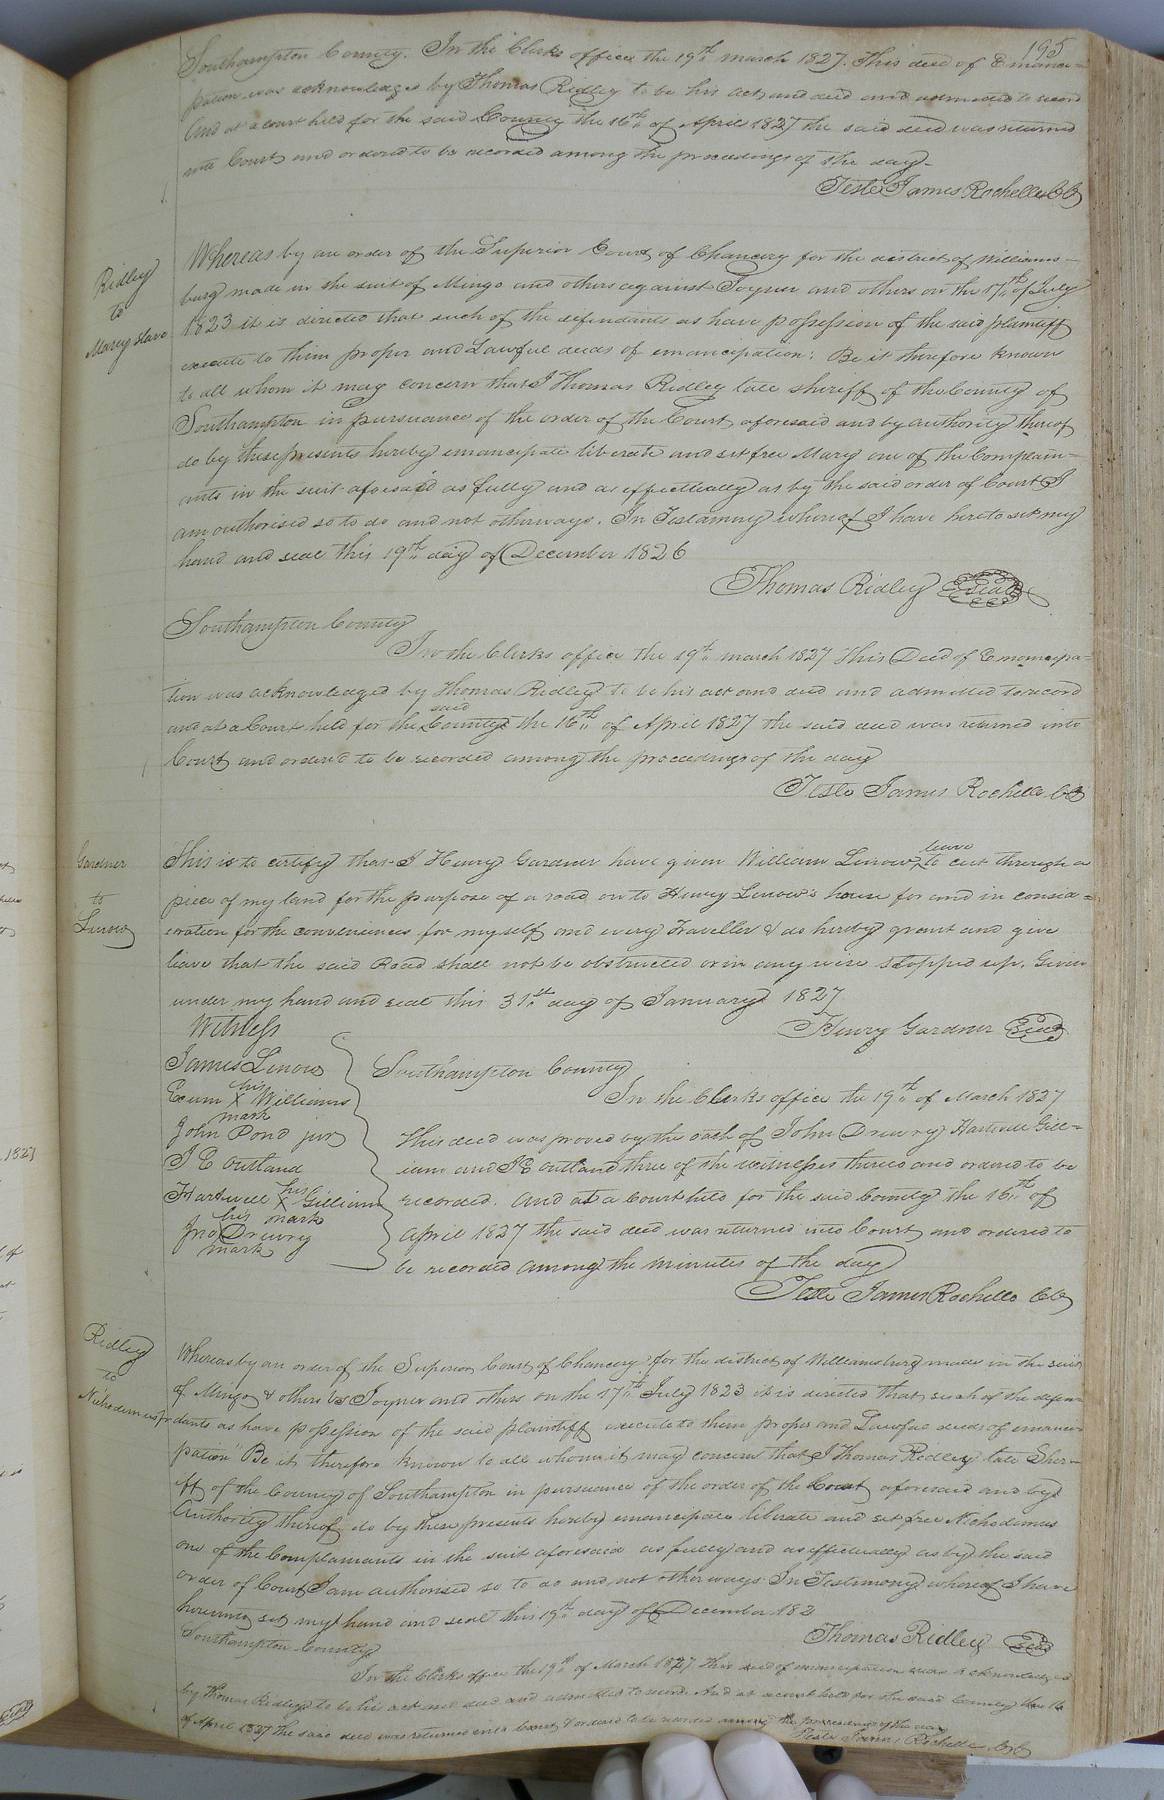 195
Southampton County. In the Clerks office the 19th march 1827. This deed of Emanci=
pation was acknowledged by Thomas Ridley to be his act and deed and admitted to record
And at a court held for the said County the 16th of April 1827 the said deed was returned
into Court and ordered to be recorded among the proceedings of the day-
Teste James Rochelle CC
Ridley
to
Mary slave
Whereas by an order of the Superior Court of Chancery for the district of Williams-
burg made in the suit of Mingo and others against Joyner and others on the 17th of July
1823 it is directed that such of the defendants as have possession of the said plaintiff
execute to them proper and Lawful deeds of emancipation: Be it therefore known
to all whom it may concern that I Thomas Ridley late sheriff of the County of
Southampton in pursuance of the order of the Court aforesaid and by authority thereof
do by these presents hereby emancipate liberate and set free Mary one of the Complain-
ants in the suit aforesaid as fully and as effectually as by the said order of Court I
am authorised so to do and not otherways. In Testamony whereof I have hereto set my
hand and seal this 19th day of December 1826
Thomas Ridley Seal
Southampton County
In the Clerks office the 19th march 1827 This Deed of Emancipa=
tion was acknowledged by Thomas Ridley to be his act and deed and admitted to record
and at a Court held for the said County the 16th of April 1827 the said deed was returned into
Court and ordered to be recorded among the proceedings of the day
Teste James Rochelle CC
Gardner
to
Linow
This is to certify that I Henry Gardner have given William Linow leave to cut through a
piece of my land for the purpose of a road on to Henry Linow's house for and in consid=
eration for the conveniences for myself and every Traveller & do hereby grant and give
leave that the said Road shall not be obstructed or in any wise stopped up. Given
under my hand and seal this 31st day of January 1827
Henry Gardner Seal
Witness
James Linow
Exum his X mark Williams
John Pond junr
J E Outland
Hartwell his X mark Gilliam
Jno his Drewry mark
Southampton County
In the Clerks office the 19th of March 1827
This deed was proved by the oath of John Drewry Hartwell Gill-
iam and J E Outland three of the witnesses thereto and ordered to be
recorded. And at a Court held for the said County the 16th of
April 1827 the said deed was returned into Court and ordered to
be recorded among the minutes of the day
Teste James Rochelle CC
Ridley
to
Nichodemus
Whereas by an order of the Superior Court of Chancery for the district of Williamsburg made in the suit
of Mingo & others vs Joyner and others on the 17th July 1823 it is directed that such of the defen
dants as have possession of the said plaintiff execute to them proper and Lawful deeds of emanci
pation Be it therefore known to all whom it may concern that I Thomas Ridley late Sher-
iff of the County of Southampton in pursuance of the order of the Court aforesaid and by
Authority thereof do by these presents hereby emancipate liberate and set free Nichodemus
one of the Complainants in the suit aforesaid as fully and as effectually as by the said
order of Court I am authorised so to do and not other ways In Testimony whereof I have
hereunto set my hand and seal this 19th day of December 182
Thomas Ridley Seal
Southampton County
In the Clerks office the 19th of March 1827 This deed of emancipation was acknowledged
by Thomas Ridley to be his act and deed and admitted to record And at a court held for the said County the 16
of April 1827 the said deed was returned into Court & ordered to be recorded among the proceedings of the day
Teste James Rochelle CC